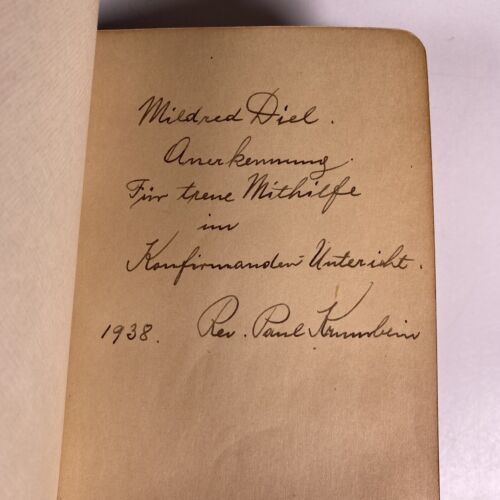 Mildred Diel.
Anerkennung.
Für treue Mithilfe
im
Konfirmanden-Untericht.
1938. Rev. Paul Krumbein